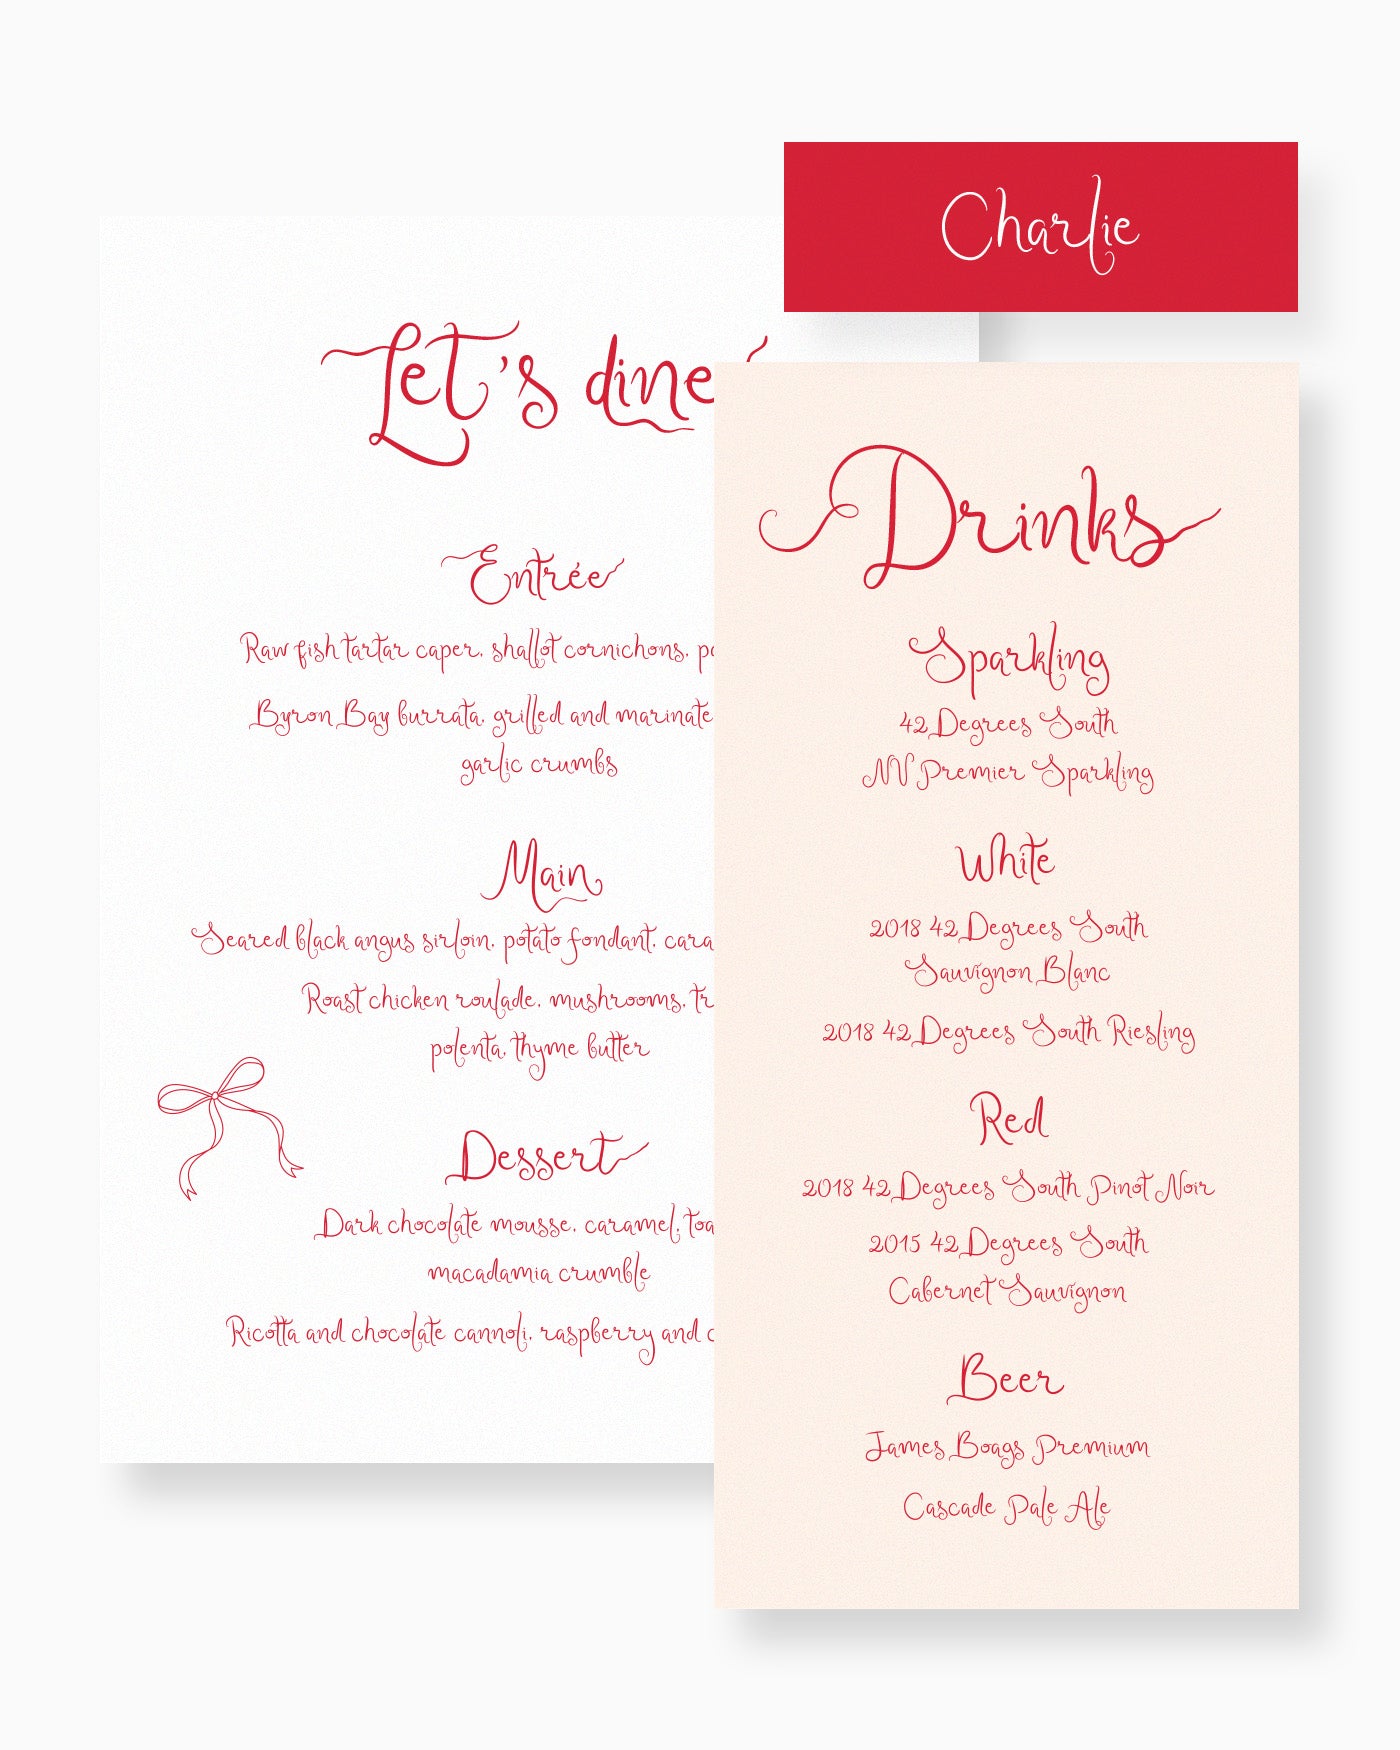 Charlie
Let's dine
Entrée
Raw fish tartar caper, shallot cornichons,
Byron Bay burrata, grilled and
garlic crumbs
Main
Seared black angus sirloin, potato fondant,
Roast chicken roulade, mushrooms,
polenta, thyme butter
Dessert
Dark chocolate mousse, caramel,
macadamia crumble
Ricotta and chocolate cannoli, raspberry and
Drinks
Sparkling
42 Degrees South
NV Premier Sparkling
White
2018 42 Degrees South
Sauvignon Blanc
2018 42 Degrees South Riesling
Red
2018 42 Degrees South Pinot Noir
2015 42 Degrees South
Cabernet Sauvignon
Beer
James Boags Premium
Cascade Pale Ale